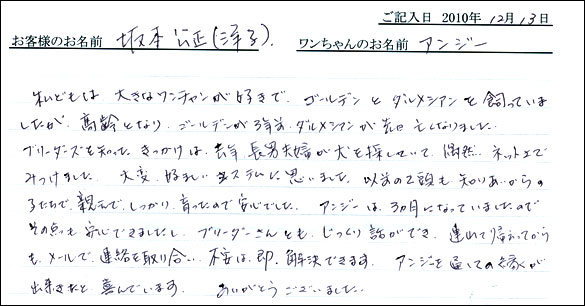 ご記入日 2010年 12月13日
お客様のお名前 坂本 公正(洋子). ワンちゃんのお名前 アンジー
私どもは、大きなワンチャンが好きで、ゴールデンとダルメシアンを飼っていま
したが、高齢となり、ゴールデンが3年前、ダルメシアンが先日亡なりました。
ブリーダーズを知ったきっかけは、去年長男夫婦が犬を探していて、偶然、ネット上で
みつけました。大変、好ましいシステムに思いました。以前の2頭も知りあいからの
子たちで、親元で、しっかり育ったので安心でした。アンジーは、3カ月になっていましたので
その点も安心できましたし、ブリーダーさんとも、じっくり話ができ、連れて帰ってから
も、メールで、連絡を取り合い、不安は、即、解決できます。アンジを通しての縁が
出来きたと喜んでいます。ありがとうございました。